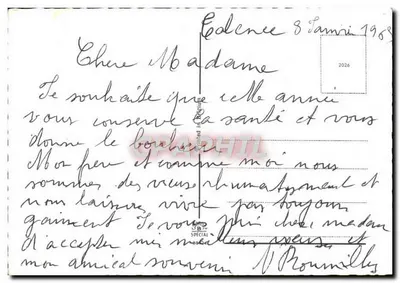 8 Janvier 19
Chere Madame
Je souhaite que cette année
vous conserve la santé et vous
donne le bonheur
Mon frere et comme moi nous
sommes des vieux rhumatisment et
nous laissons vivre pas toujour
gaiment Je vous prie chere madame
d'accepter mes meilleurs voeux et
mon amical souvenir
2026
SPECIAL